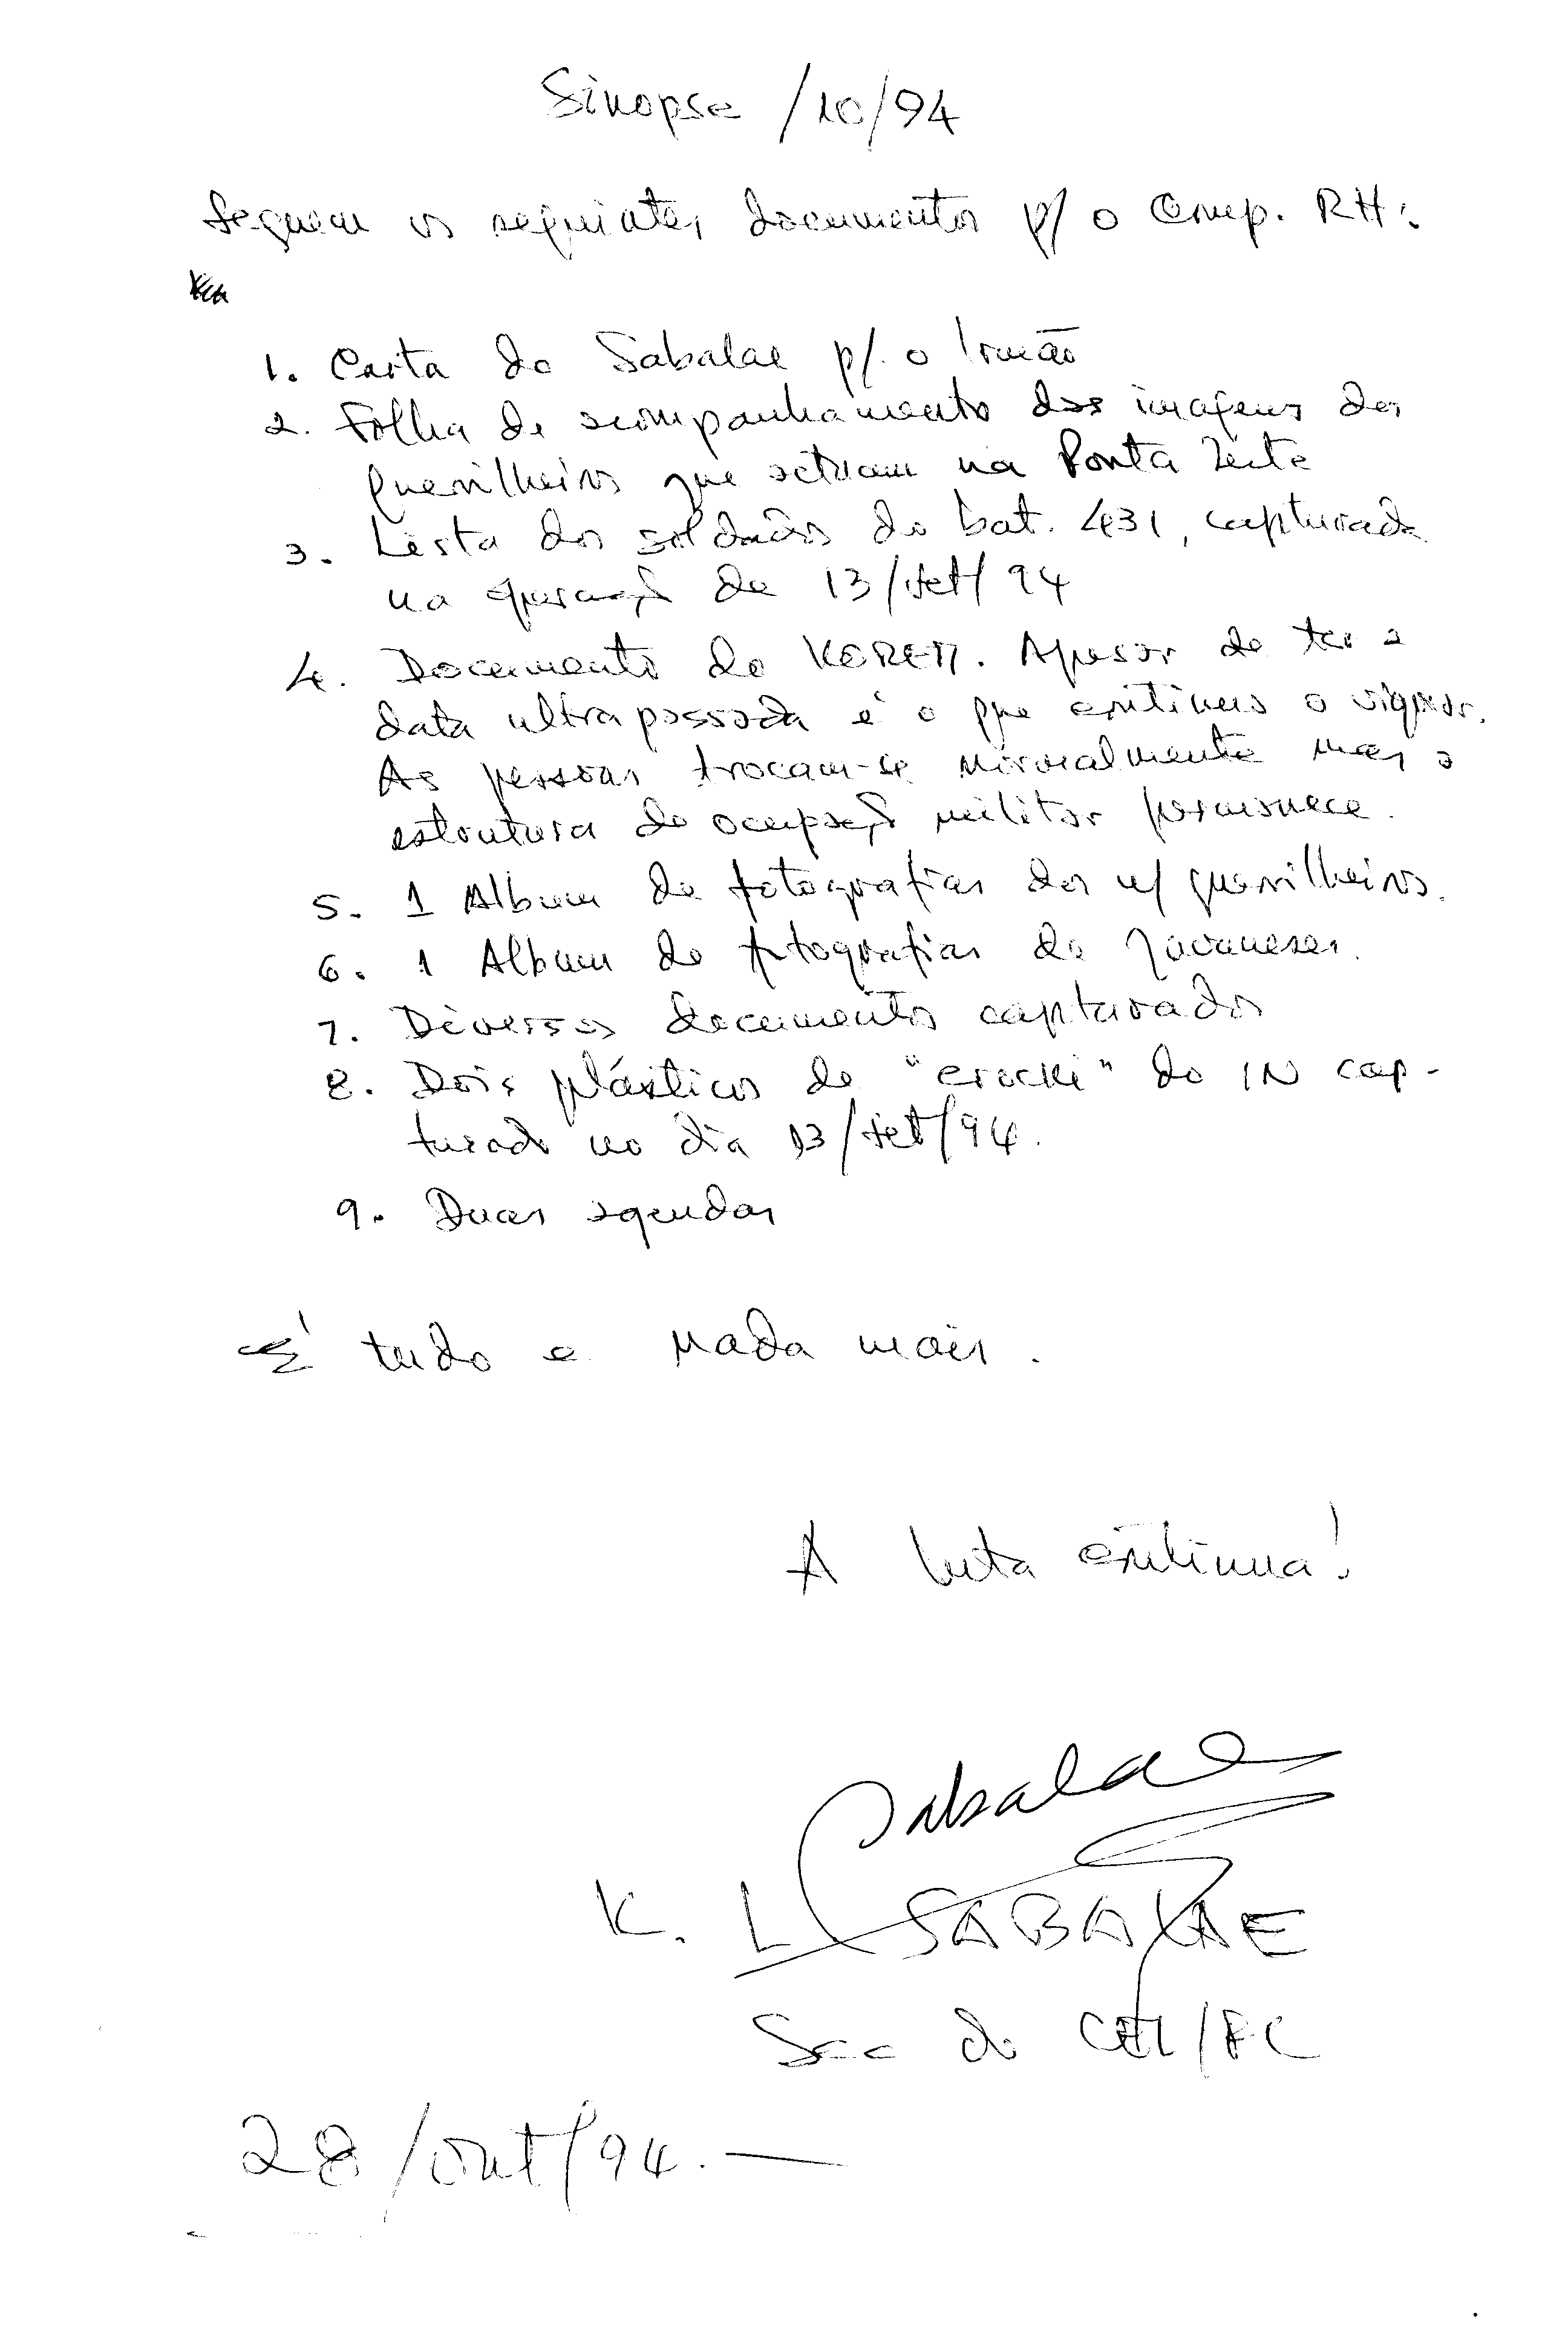 Sinopse /10/94
Seguem os seguintes documentos p/ o Comp. RH:
1. Carta do Sabalae p/. o Irmão
2. Folha de acompanhamento das imagens dos
guerrilheiros que actuam na Ponta Leste
3. Lista dos soldados do bat. 431, capturada
na operação de 13/set/94
4. Documento do KOREM. Apesar de ter a
data ultrapassada é o que continua o vigorar.
As pessoas trocam-se normalmente mas a
estrutura de ocupação militar permanece.
5. 1 Album de fotografias dos n/ guerrilheiros.
6. 1 Album de fotografias de Javaneses.
7. Diversos documentos capturados
8. Dois plásticos de "crocki" do IN cap-
turado no dia 13/set/94.
9. Duas agendas
É tudo e nada mais.
A luta continua!
Sabalae
K. L SABALAE
Sec do /FC
28/out/94. —